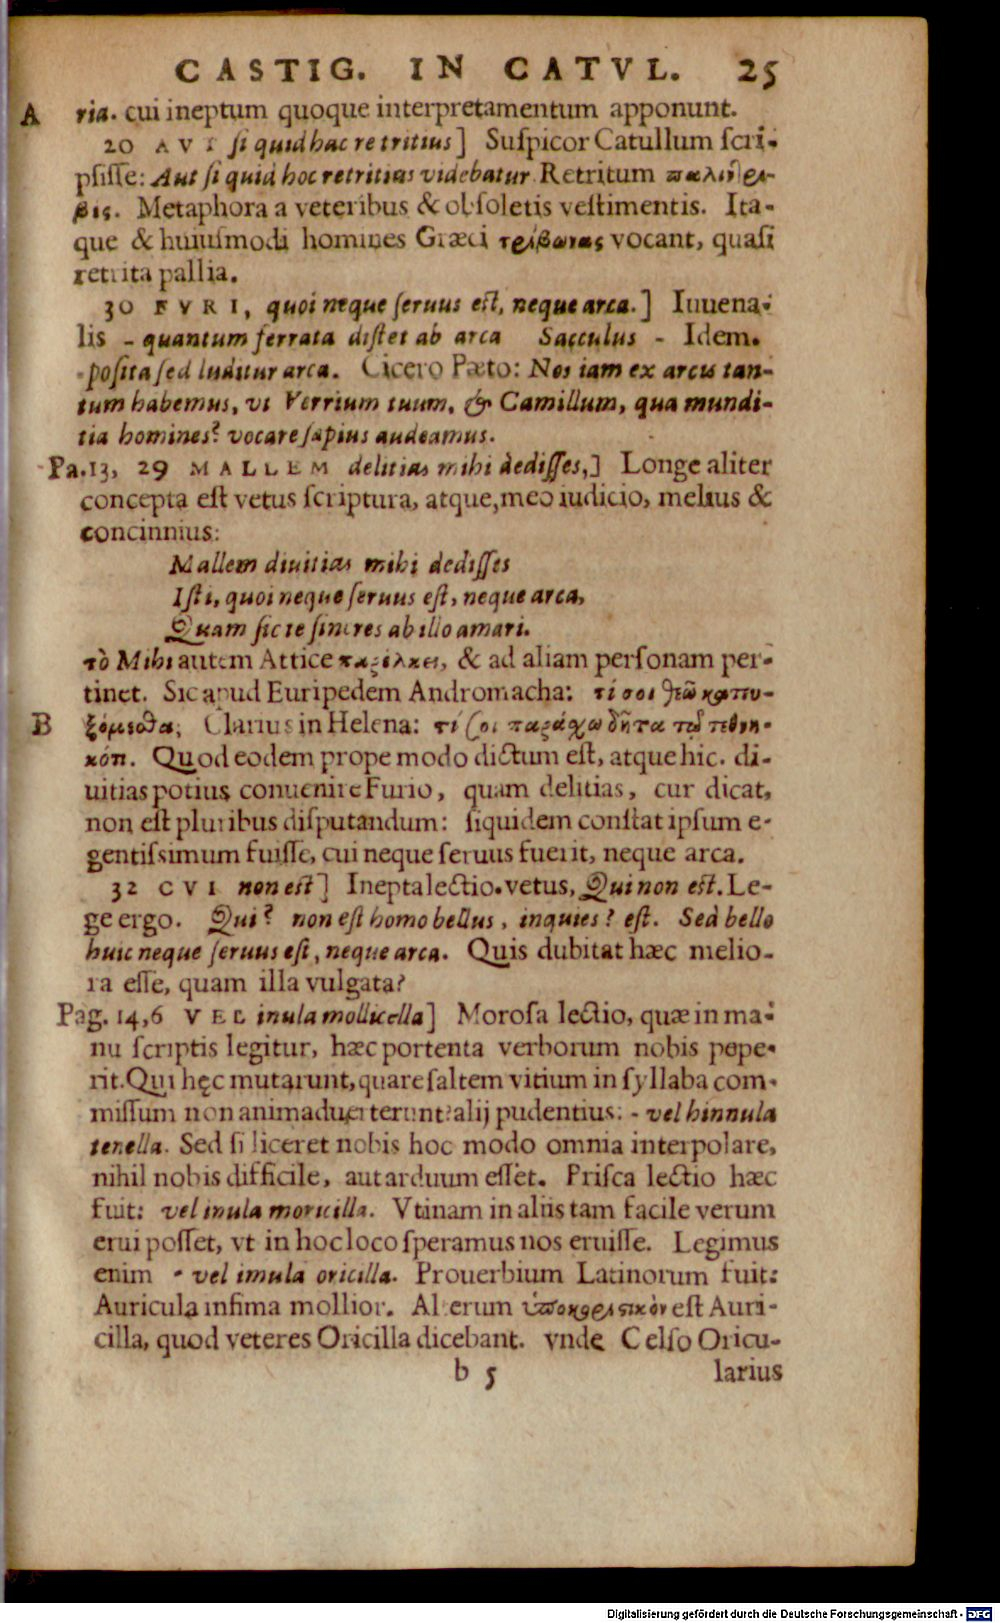 CASTIG. IN CATVL. 25
A ria. cui ineptum quoque interpretamentum apponunt.
20 AVT si quid hac re tritius] Suspicor Catullum scri-
psisse: Aut si quid hoc retritius videbatur. Retritum παλιντρι-
βις. Metaphora a veteribus & obsoletis vestimentis. Ita-
que & huiusmodi homines Græci τρίβωνας vocant, quasi
retrita pallia.
30 FVRI, quoi neque seruus est, neque arca.] Iuuena-
lis - quantum ferrata distet ab arca Sacculus - Idem.
- posita sed luditur arca. Cicero Pæto: Nos iam ex arcu tan-
tum habemus, vt Verrium tuum, & Camillum, qua mundi-
tia homines? vocare sæpius audeamus.
Pa.13, 29 MALLEM delitias mihi dedisses,] Longe aliter
concepta est vetus scriptura, atque, meo iudicio, melius &
concinnius:
Mallem diuitias mihi dedisses
Isti, quoi neque seruus est, neque arca,
Quam sic te sineres ab illo amari.
τὸ Mihi autem Attice παρέλκει, & ad aliam personam per-
tinet. Sic apud Euripedem Andromacha: τί σοι
B Clarius in Helena: τί σοι παράσχω δῆτα τῷ τεθνη-
κότι. Quod eodem prope modo dictum est, atque hic. di-
uitias potius conuenire Furio, quam delitias, cur dicat,
non est pluribus disputandum: siquidem constat ipsum e-
gentissimum fuisse, cui neque seruus fuerit, neque arca.
32 CVI non est] Inepta lectio. vetus, Qui non est. Le-
ge ergo. Qui? non est homo bellus, inquies? est. Sed bello
huic neque seruus est, neque arca. Quis dubitat hæc melio-
ra esse, quam illa vulgata?
Pag. 14,6 VEL inula mollicella] Morosa lectio, quæ in ma-
nu scriptis legitur, hæc portenta verborum nobis pepe-
rit. Qui hęc mutarunt, quare saltem vitium in syllaba com-
missum non animaduerterunt? alij pudentius: - vel hinnula
tenella. Sed si liceret nobis hoc modo omnia interpolare,
nihil nobis difficile, aut arduum esset. Prisca lectio hæc
fuit: vel inula moricilla. Vtinam in aliis tam facile verum
erui posset, vt in hoc loco speramus nos eruisse. Legimus
enim - vel imula oricilla. Prouerbium Latinorum fuit:
Auricula infima mollior. Alterum ὑποκοριστικὸν est Auri-
cilla, quod veteres Oricilla dicebant. vnde Celso Oricu-
b 5 larius
Digitalisierung gefördert durch die Deutsche Forschungsgemeinschaft - DFG